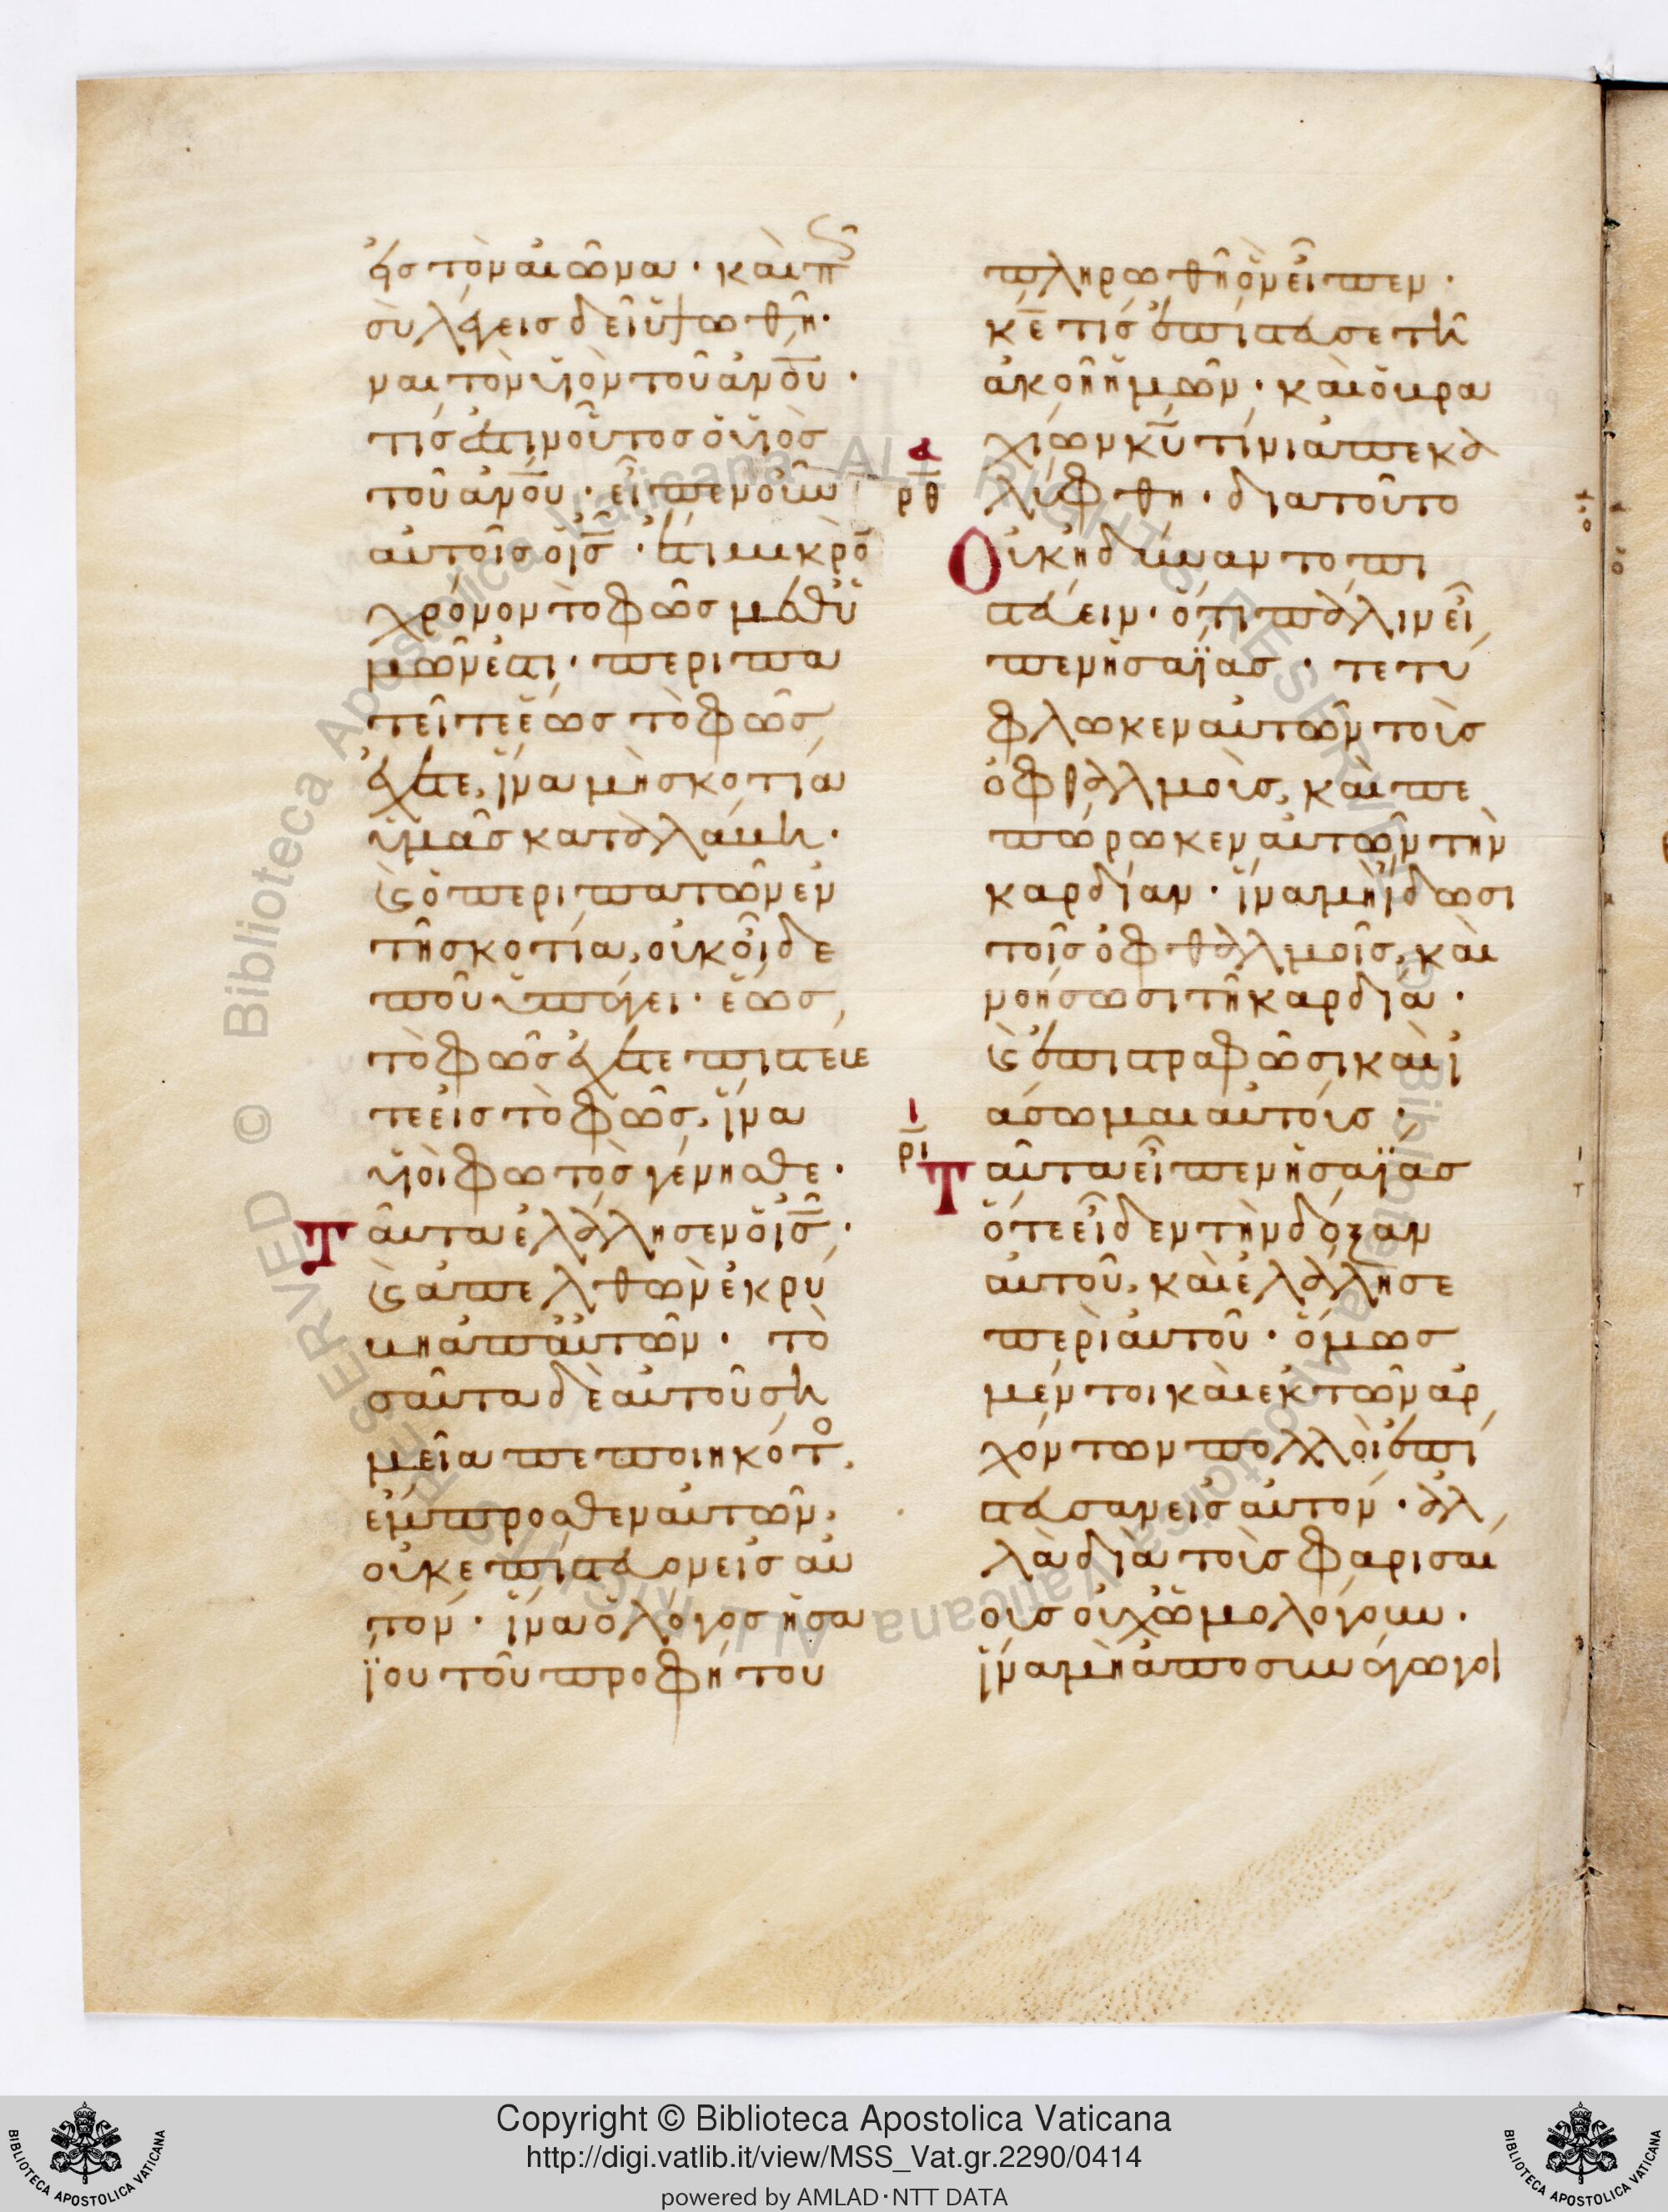 εἰς τὸν αἰῶνα · καὶ πῶς
σὺ λέγεις δεῖ ὑψωθῆ·
ναι τὸν υἱὸν τοῦ ἀν̅ο̅υ ·
τίς ἐστιν οὗτος ὁ υἱὸς
τοῦ ἀν̅ο̅υ · εἶπεν οὖν
αὐτοῖς ὁ ι̅ς̅ · ἔτι μικρὸ
χρόνον τὸ φῶς μεθ ὑ
μῶν ἐστι · περιπα
τεῖτε ἕως τὸ φῶς
ἔχετε, ἵνα μὴ σκοτία
ὑμᾶς καταλάβη ·
ϗ ὁ περιπατῶν ἐν
τῆ σκοτία, οὐκ οἶδε
ποῦ ὑπάγει · ἕως
τὸ φῶς ἔχετε πιστεύε
τε εἰς τὸ φῶς, ἵνα
υἱοὶ φωτὸς γένησθε ·
Ταῦτα ἐλάλησεν ὁ ι̅ς̅ ·
ϗ ἀπελθὼν ἐκρύ
βη ἀπ' αὐτῶν · το
σαῦτα δὲ αὐτοῦ ση
μεῖα πεποιηκότο
ἔμπροσθεν αὐτῶν,
οὐκ ἐπίστευον εἰς αὐ
τόν · ἵνα ὁ λόγος ἡσα
ΐου τοῦ προφήτου
πληρωθῆ ὃν εἶπεν ·
κ̅ε̅ τίς ἐπίστευσε τῆ
ἀκοῆ ἡμῶν · καὶ ὁ βρα
χίων κ̅υ̅ τίνι ἀπεκα
α
ρθ
λύφθη · διατοῦτο
Οὐκ ἠδύναντο πι
στεύειν · ὅτι πάλιν εἶ
πεν ἡσαΐας · τετύ
φλωκεν αὐτῶν τοὺς
ὀφθαλμοὺς, καὶ πε
πώρωκεν αὐτῶν τὴν
καρδίαν · ἵνα μὴ ἴδωσι
τοῖς ὀφθαλμοῖς, καὶ
νοήσωσι τῆ καρδία ·
ϗ ἐπιστραφῶσι καὶ ἰ
άσωμαι αὐτούς ·
ι
ρι
Ταῦτα εἶπεν ἡσαΐας
ὅτε εἶδεν τὴν δόξαν
αὐτοῦ, καὶ ἐλάλησε
περὶ αὐτοῦ · ὅμως
μέντοι καὶ ἐκ τῶν ἀρ
χόντων πολλοὶ ἐπί
στευσαν εἰς αὐτόν · ἀλ
λὰ διὰ τοὺς φαρισαί
ους οὐχ ὡμολόγουν ·
ἵνα μὴ ἀποσυνάγωγοι
Copyright © Biblioteca Apostolica Vaticana
http://digi.vatlib.it/view/MSS_Vat.gr.2290/0414
powered by AMLAD·NTT DATA
BIBLIOTECA APOSTOLICA VATICANA
BIBLIOTECA APOSTOLICA VATICANA